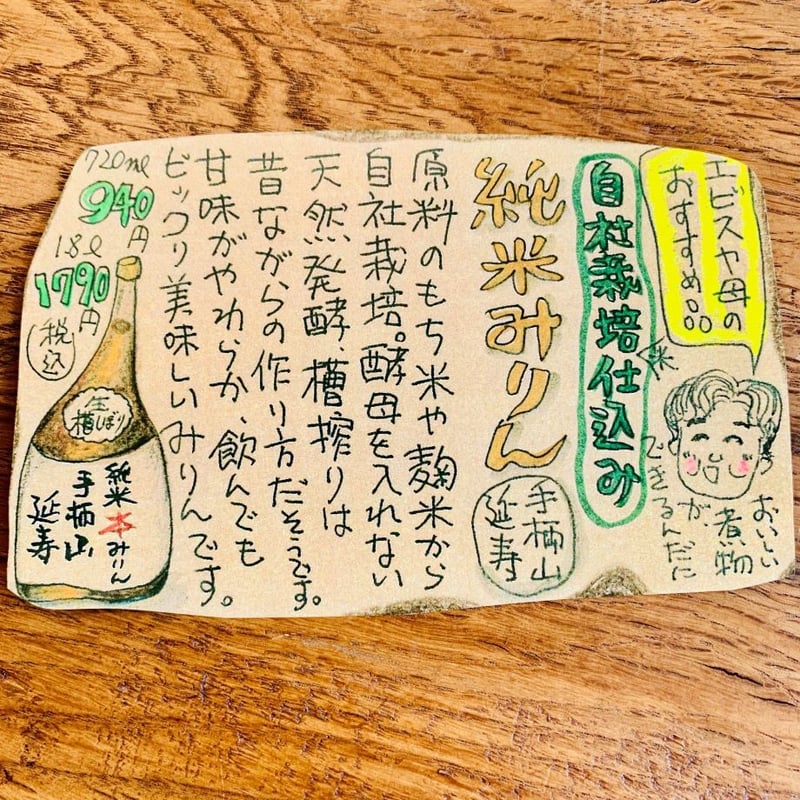 エビスヤ母の
おすすめ品
おいしい
煮物
が、
できるんだに
自社栽培仕込み
米
純米みりん
手柄山
延寿
原料のもち米や麹米から
自社栽培。酵母を入れない
天然発酵、槽搾りは
昔ながらの作り方だそうです。
甘味がやわらか、飲んでも
ビックリ美味しいみりんです。
720ml
940円
1.8ℓ
1790円
税込
生
槽しぼり
純米本みりん
手柄山
延寿